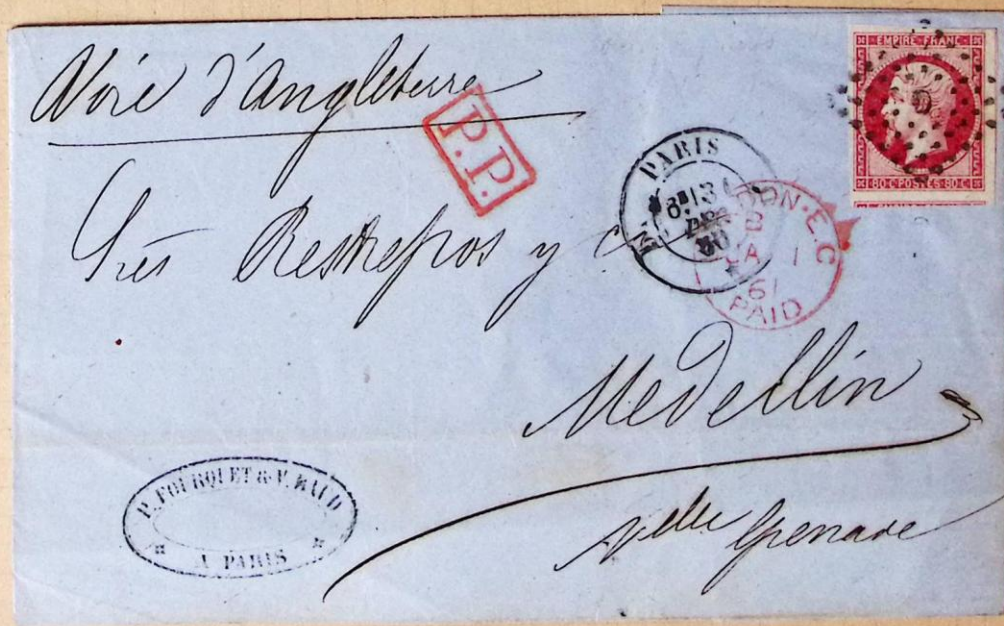 Voie d'Angleterre
P.P.
EMPIRE FRANC
80·C·POSTES·80·C
PARIS
DEC
60
LONDON·E.C
B
JA 1
61
PAID
Srés Restrepos y C
Medellin
Nlle Grenade
P. FOURQUET & V. BAUD
A PARIS